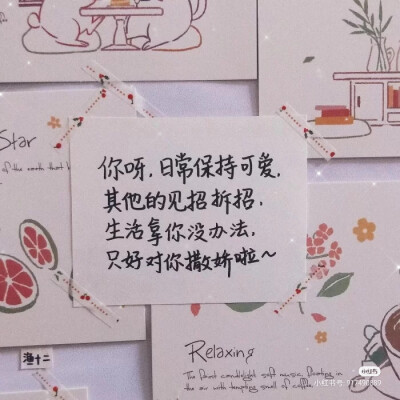 Star
你呀，日常保持可爱，
其他的见招拆招，
生活拿你没办法，
只好对你撒娇啦～
海十二
Relaxing
The faint candlelight soft music, floating in
the air with tempting smell of coffee.
小红书